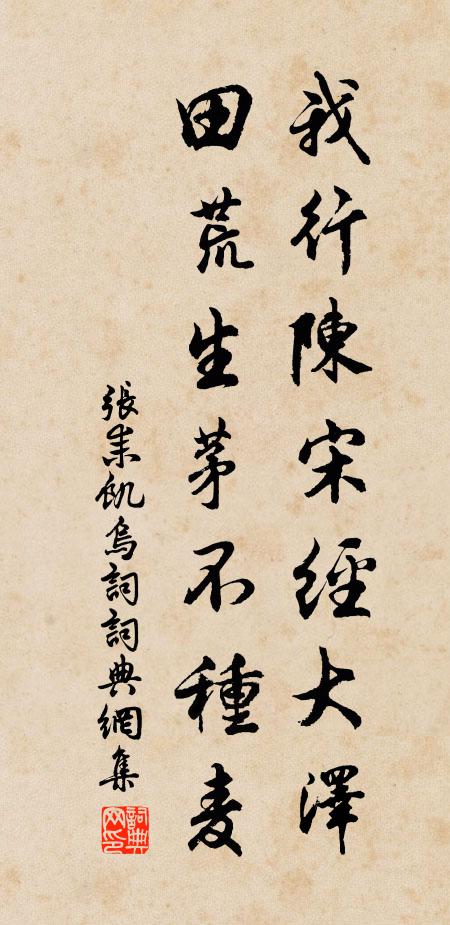 我行陳宋經大澤
田荒生茅不種麦
張耒飢烏詞詞典網集
詞典网印